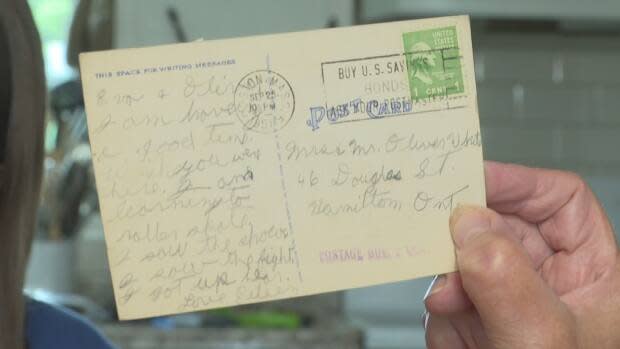 THIS SPACE FOR WRITING MESSAGES
Eva & Oliver
I am having
a good time
wish you were
here. I am
learning to
roller skate
I saw the shows
I saw the fight
I got up
Love
SEP 25
PM
BUY U.S. SAVINGS
BONDS
ASK YOUR POSTMASTER
UNITED STATES
POSTAGE
1 CENT 1
POST CARD
Mrs Mr. Oliver
46 Douglas St.
Hamilton Ont
POSTAGE DUE